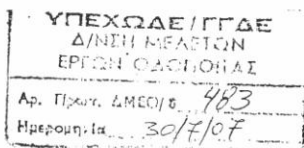 ΥΠΕΧΩΔΕ/ΓΓΔΕ
Δ/ΝΣΗ ΜΕΛΕΤΩΝ
ΕΡΓΩΝ ΟΔΟΠΟΙΙΑΣ
Αρ. Πρωτ. ΔΜΕΟ/δ 483
Ημερομηνία 30/7/07